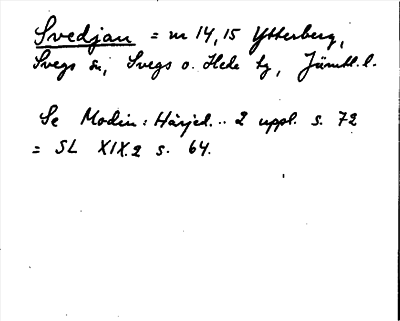 Svedjan = nr 14, 15 Ytterberg,
Svegs sn, Svegs o. Hede tg, Jämtl. l.
Se Modin: Härjed... 2 uppl. s. 72
= SL XIX.2 s. 64.